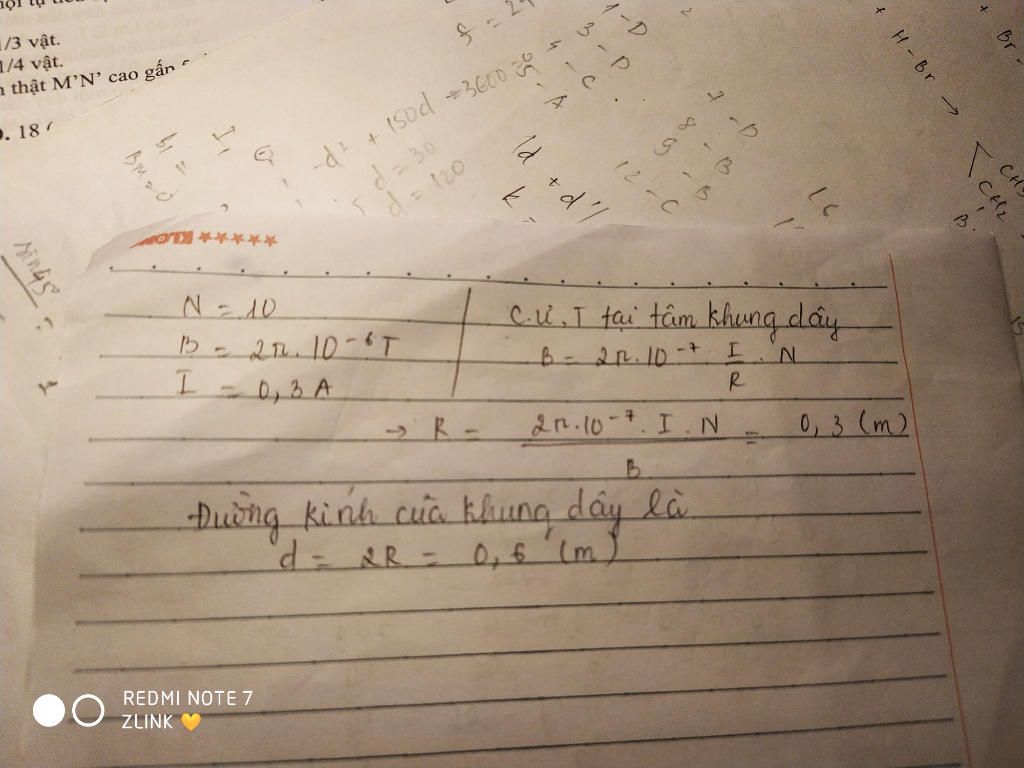 1/3 vật.
1/4 vật.
thật M'N' cao gấp
-d² + 150d = 3600
d = 30
d = 120
1 - D
3 - D
4 - C
5 - A
7 - D
8 - B
9 - B
12 - C
H - Br →
CH3
CH2
★★★★★
N = 10
B = 2π.10⁻⁶ T
I = 0,3 A
C.Ư.T tại tâm khung dây
B = 2π.10⁻⁷ . I/R . N
→ R = 2π.10⁻⁷. I . N / B = 0,3 (m)
Đường kính của khung dây là
d = 2R = 0,6 (m)
REDMI NOTE 7
ZLINK 💛